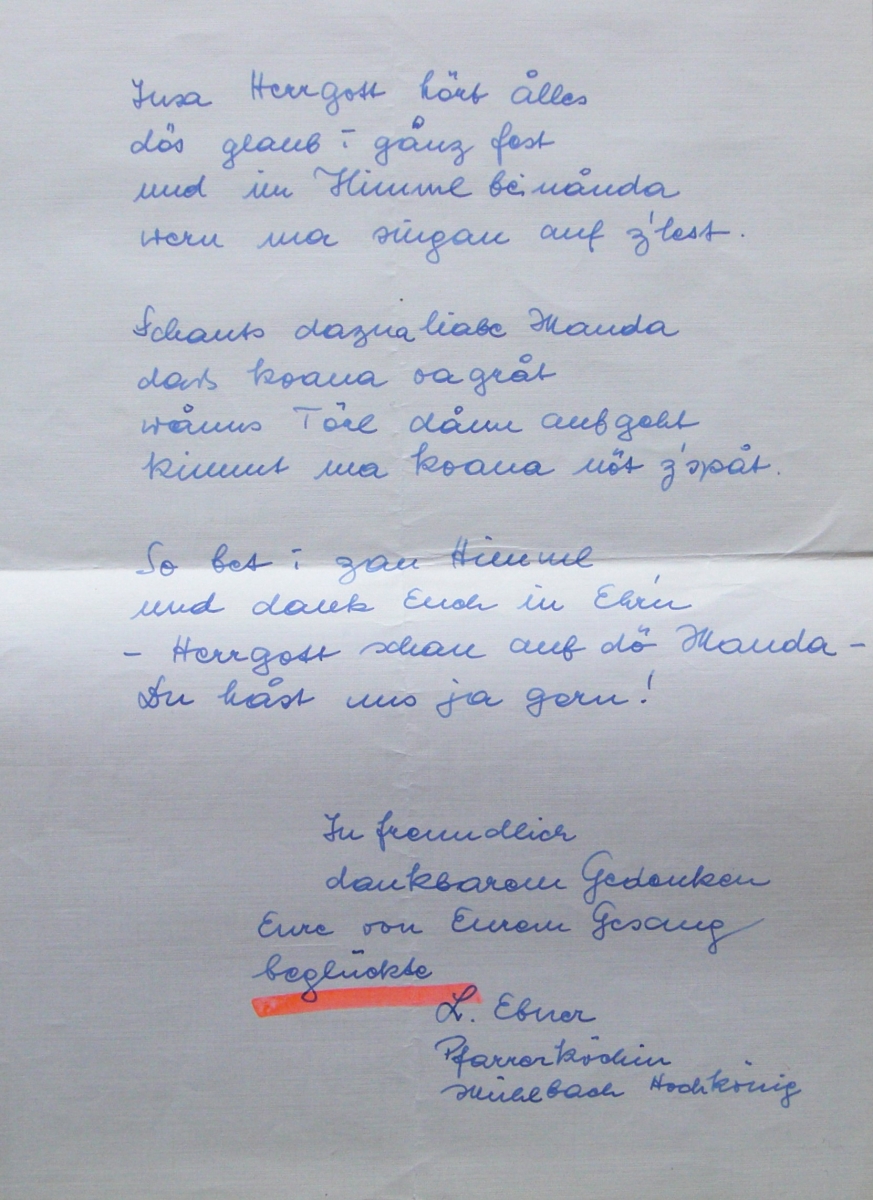 Insa Herrgott hört ålles
dös glaub i gånz fest
und im Himmel beinånda
wern ma singan auf z'lest.
Schauts dazua liabe Manda
daß koana vagråt
wånns Törl dånn aufgeht
kimmt ma koana nöt z'spåt.
So bet i zan Himmel
und dank Euch in Ehr'n
- Herrgott schau auf dö Manda -
Du håst uns ja gern!
In freundlich
dankbarem Gedenken
Eure von Eurem Gesang
beglückte
L. Ebner
Pfarrerköchin
Mühlbach Hochkönig